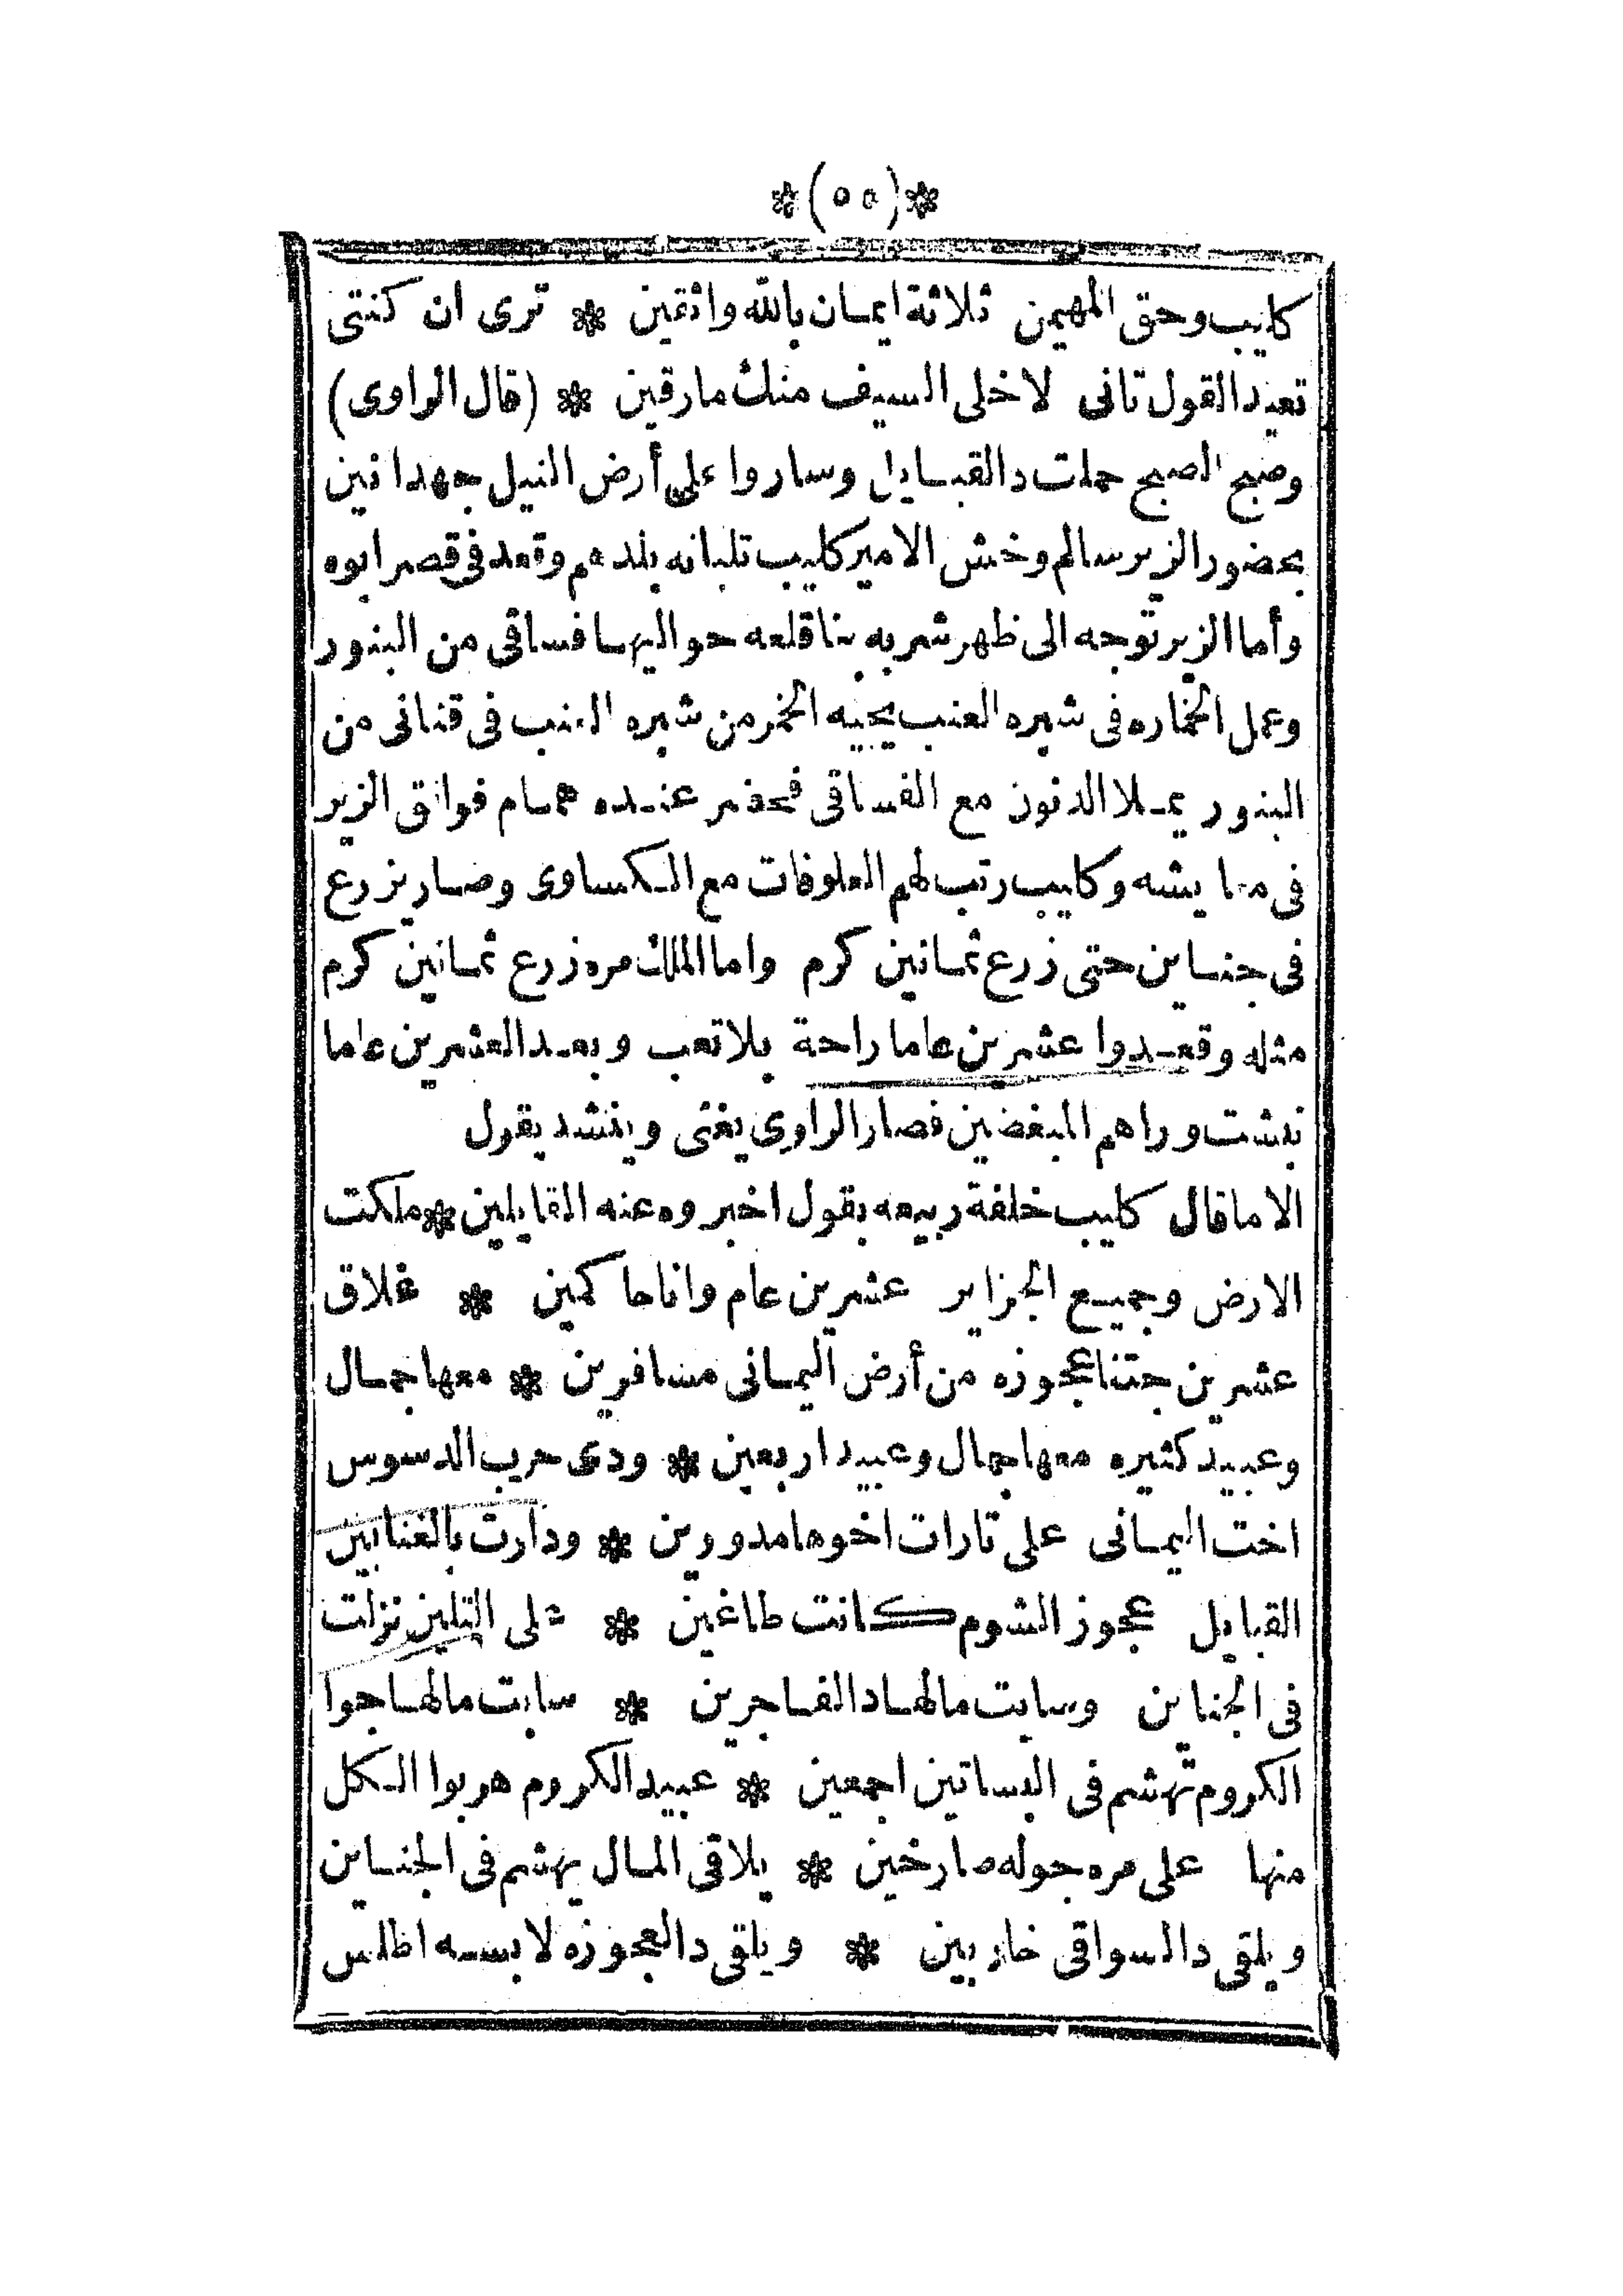 *(٥٥)*
كليب وحق المهيمن ثلاثة ايمان بالله واثقين * ترى ان كنتى
تعيد القول تانى لا خلى السيف منك مارقين * (قال الراوى)
وصبح الصبح حملت دالقبايل وساروا على أرض النيل جهدانين
بحضور الزير سالم وخش الامير كليب تلبانه بلدهم وقعد فى قصر ابوه
وأما الزير توجه الى ظهر شربه بنا قلعه حواليها فساقى من البنور
وعمل الخماره فى شبره العنب يجيبه الخمر من شبره العنب فى قنانى من
البنور يملا الدنون مع الفساقى فحضر عنده همام فوافق الزير
فى معايشه وكليب رتب لهم العلوفات مع الكساوى وصار يزرع
فى جنساين حتى زرع ثمانين كرم واما الملك مره زرع ثمانين كرم
مثله وقعدوا عشرين عاما راحة بلا تعب وبعد العشرين عاما
نبشت وراهم المبغضين فصار الراوى يغنى وينشد يقول
الاما قال كليب خلفة ربيعه يقول اخبروه عنه القايلين * ملكت
الارض وجميع الجزاير عشرين عام وانا حاكمين * غلاق
عشرين جتنا عجوزه من أرض اليمانى مسافرين * معها جمال
وعبيد كثيره معها جمال وعبيد اربعين * ودى حرب الدسوس
اخت اليمانى على تارات اخوها مدورين * ودارت بالغنابين
القبايل عجوز الشوم كانت طاغين * على التلين نزلت
فى الجناين وسابت مالها دالفاجرين * سابت مالها جوا
الكروم تهشم فى البساتين اجمعين * عبيد الكروم هربوا الكل
منها على مره جوله صارخين * يلاقى المال يهشم فى الجناين
ويلقى دالسواقى خاربين * ويلقى دالعجوزه لابسه اطلس